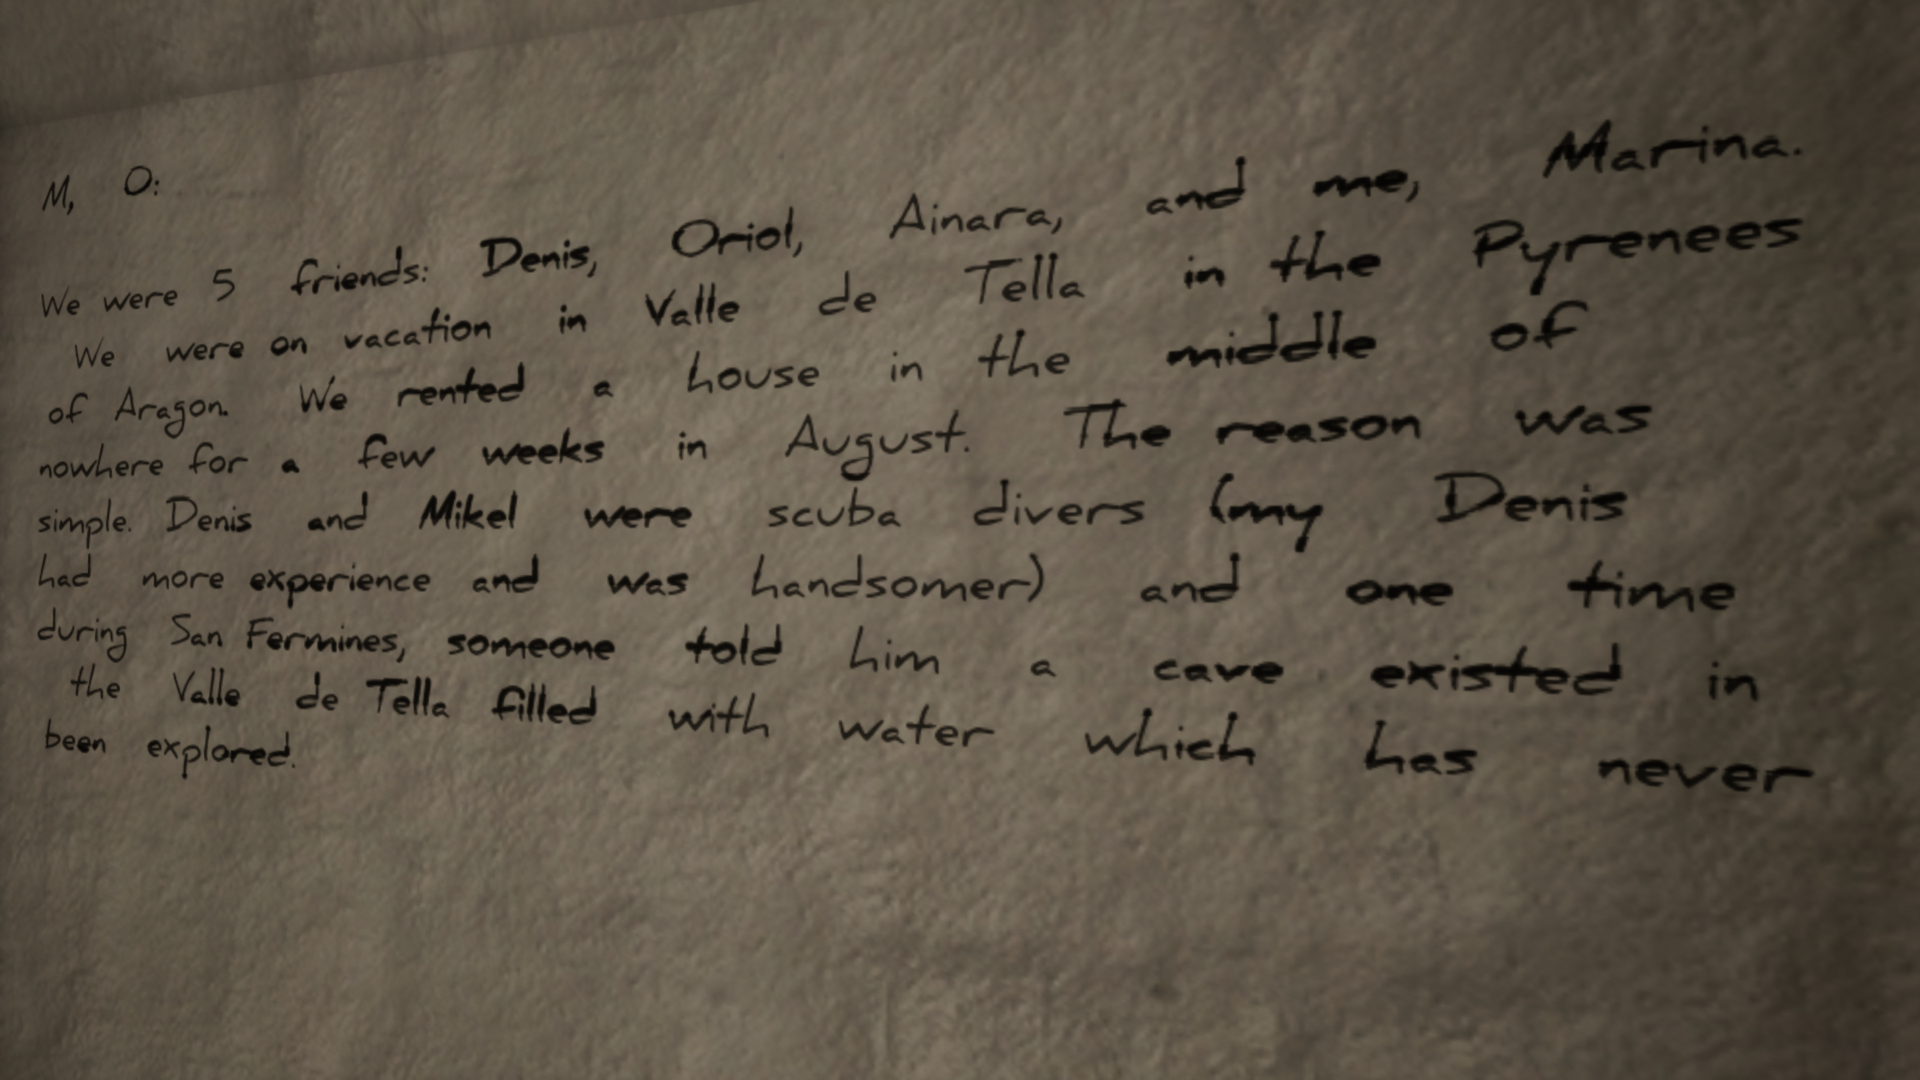 M, O:
We were 5 friends: Denis, Oriol, Ainara, and me, Marina.
We were on vacation in Valle de Tella in the Pyrenees
of Aragon. We rented a house in the middle of
nowhere for a few weeks in August. The reason was
simple. Denis and Mikel were scuba divers (my Denis
had more experience and was handsomer) and one time
during San Fermines, someone told him a cave existed in
the Valle de Tella filled with water which has never
been explored.